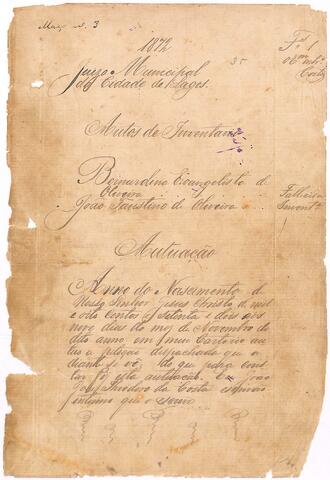 Maço n. 3
1872
Fs 1
Juizo Municipal
da Cidade de Lages.
Autos de Inventario
Bernardino Evangelista d
Oliveira
Fallecido
João Faustino de Oliveira
Invent
Autuação
Anno do Nascimento de
Nosso Senhor Jesus Christo de mil
e oito centos e setenta e dois aos
nove dias do mez de Novembro do
dito anno, em meu Cartorio au
tuo a petição despachada que a
diante se vê; do que para cons
tar fiz esta autuação. Eu João
José Theodoro da Costa escrivão
interino que o escrevi